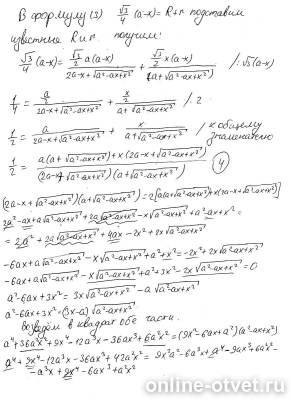 В формулу (3) √3/4 (a-x) = R+r подставим
известные R и r. получим:
√3/4 (a-x) = (√3/2 a(a-x))/(2a-x+√(a²-ax+x²)) + (√3/2 x(a-x))/(a+√(a²-ax+x²)) /:√3(a-x)
1/4 = (a/2)/(2a-x+√(a²-ax+x²)) + (x/2)/(a+√(a²-ax+x²)) /·2
1/2 = a/(2a-x+√(a²-ax+x²)) + x/(a+√(a²-ax+x²)) / к общему знаменателю
1/2 = (a(a+√(a²-ax+x²))+x(2a-x+√(a²-ax+x²)))/((2a-x+√(a²-ax+x²))(a+√(a²-ax+x²))) (4)
(2a-x+√(a²-ax+x²))(a+√(a²-ax+x²))=2[a(a+√(a²-ax+x²))+x(2a-x+√(a²-ax+x²))]
2a²-ax+a√(a²-ax+x²)+2a√(a²-ax+x²)-x√(a²-ax+x²)+a²-ax+x²=
=2a²+2a√(a²-ax+x²)+4ax-2x²+2x√(a²-ax+x²)
-6ax+a√(a²-ax+x²)-x√(a²-ax+x²)+a²+x²=-2x²+2x√(a²-ax+x²)
-6ax+a√(a²-ax+x²)-x√(a²-ax+x²)+a²+3x²-2x√(a²-ax+x²)=0
a²-6ax+3x²=3x√(a²-ax+x²)-a√(a²-ax+x²)
a²-6ax+3x²=(3x-a)√(a²-ax+x²)
возведём в квадрат обе части.
a⁴+36a²x²+9x⁴-12a³x-36ax³+6a²x²=(9x²-6ax+a²)(a²-ax+x²)
a⁴+9x⁴-12a³x-36ax³+42a²x²=9x²a²-6a³x+a⁴-9ax³+6a²x²-
-a³x+9x⁴-6ax³+a²x²
online-otvet.ru